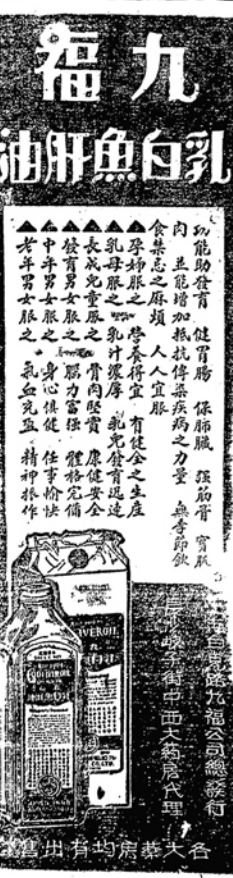 九福
乳白魚肝油
功能助發育 健胃腸 保肺臟 強筋骨 實肌
肉 並能增加抵抗傳染疾病之力量 無季節飲
食禁忌之麻煩 人人宜服
▲孕婦服之 營養得宜 有健全之生產
▲乳母服之 乳汁濃厚 乳兒發育迅速
▲長成兒童服之 骨肉堅實 康健安全
▲發育男女服之 腦力富強 體格完備
▲中年男女服之 身心俱健 任事愉快
▲老年男女服之 氣血充盈 精神振作
白克路九福公司總發行
街中西大药房代理
各大藥房均有出售